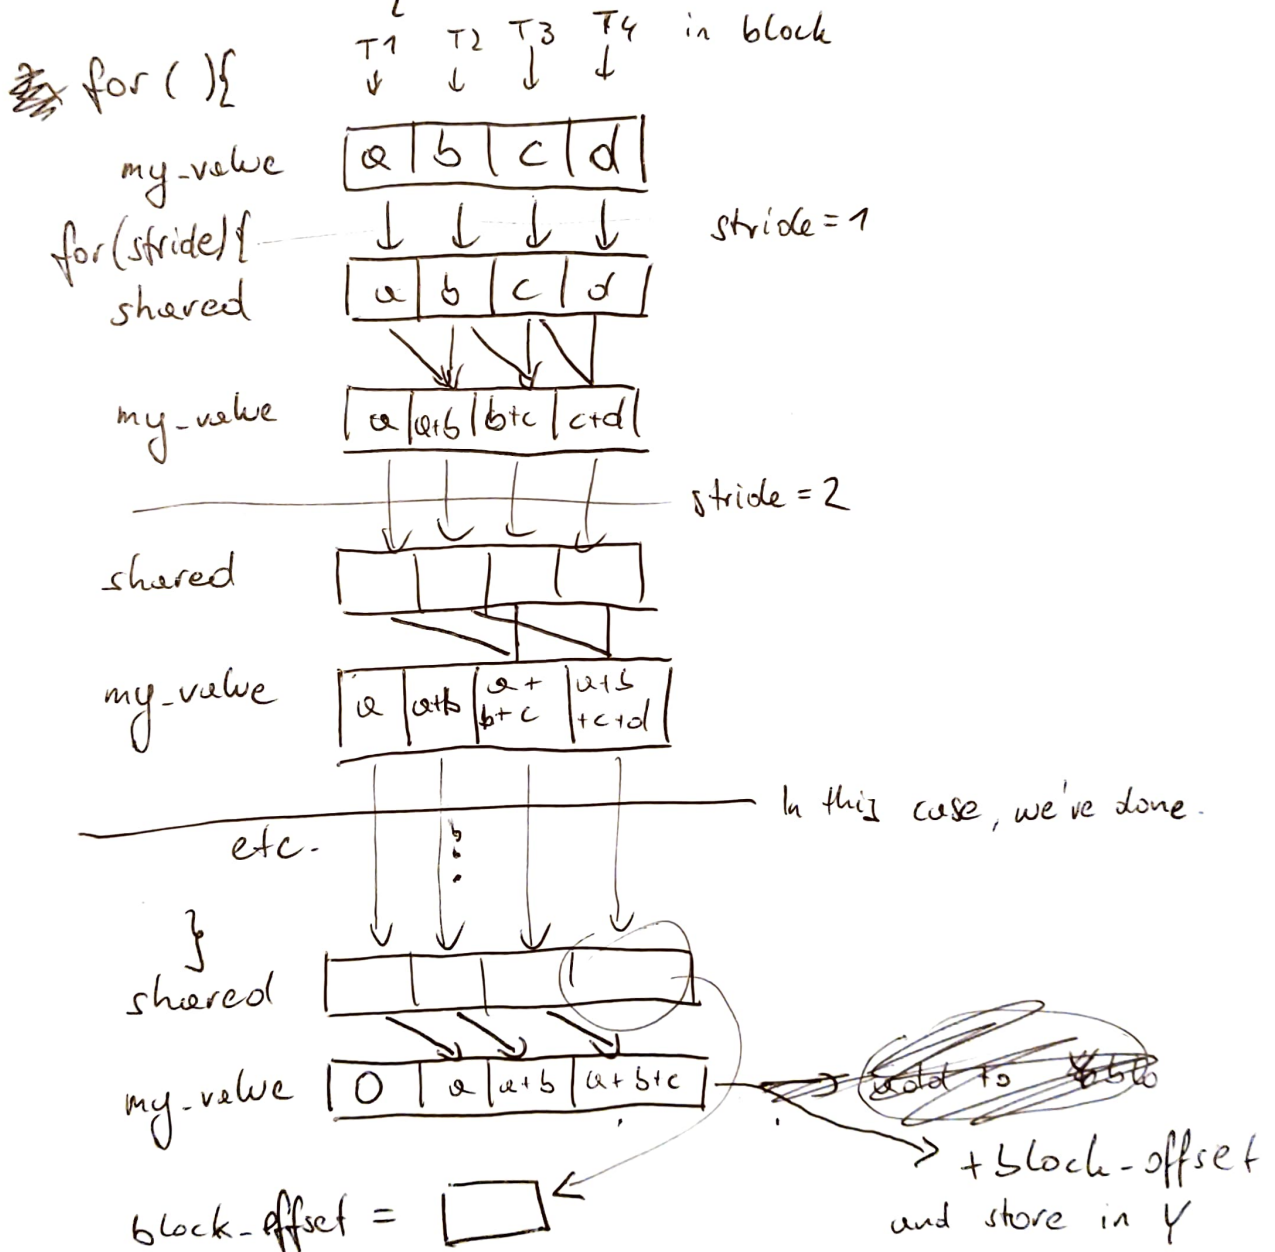 T1 T2 T3 T4 in block
for ( ){
my_value a b c d
for(stride){ stride = 1
shared a b c d
my_value a a+b b+c c+d
stride = 2
shared
my_value a a+b a+ b+c a+b +c+d
In this case, we've done.
etc.
}
shared
my_value 0 a a+b a+b+c
add to
+ block_offset
and store in Y
block_offset =